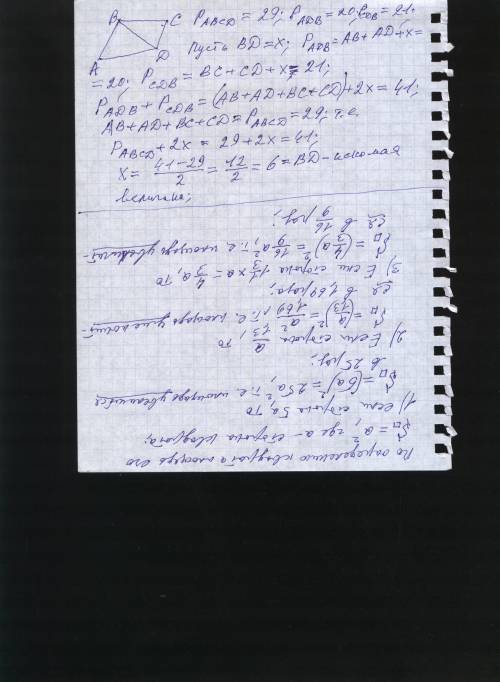 B C P_ABCD = 29; P_ADB = 20; P_CDB = 21;
A D Пусть BD = x; P_ADB = AB + AD + x =
= 20; P_CDB = BC + CD + x = 21;
P_ADB + P_CDB = (AB + AD + BC + CD) + 2x = 41;
AB + AD + BC + CD = P_ABCD = 29, т.е.
P_ABCD + 2x = 29 + 2x = 41;
x = (41 - 29)/2 = 12/2 = 6 = BD - искомая
величина;
По определению квадрата площадь его
S□ = a², где a - сторона квадрата;
1) если сторона 5a, то
S□ = (5a)² = 25a², т.е. площадь увеличится
в 25 раз;
2) Если сторона a/1,3, то
S□ = (a/1,3)² = a²/1,69, т.е. площадь уменьшит-
ся в 1,69 раза;
3) Если сторона 1 1/3 × a = 4/3 a, то
S□ = (4/3 a)² = 16/9 a², т.е. площадь увеличит-
ся в 16/9 раз;